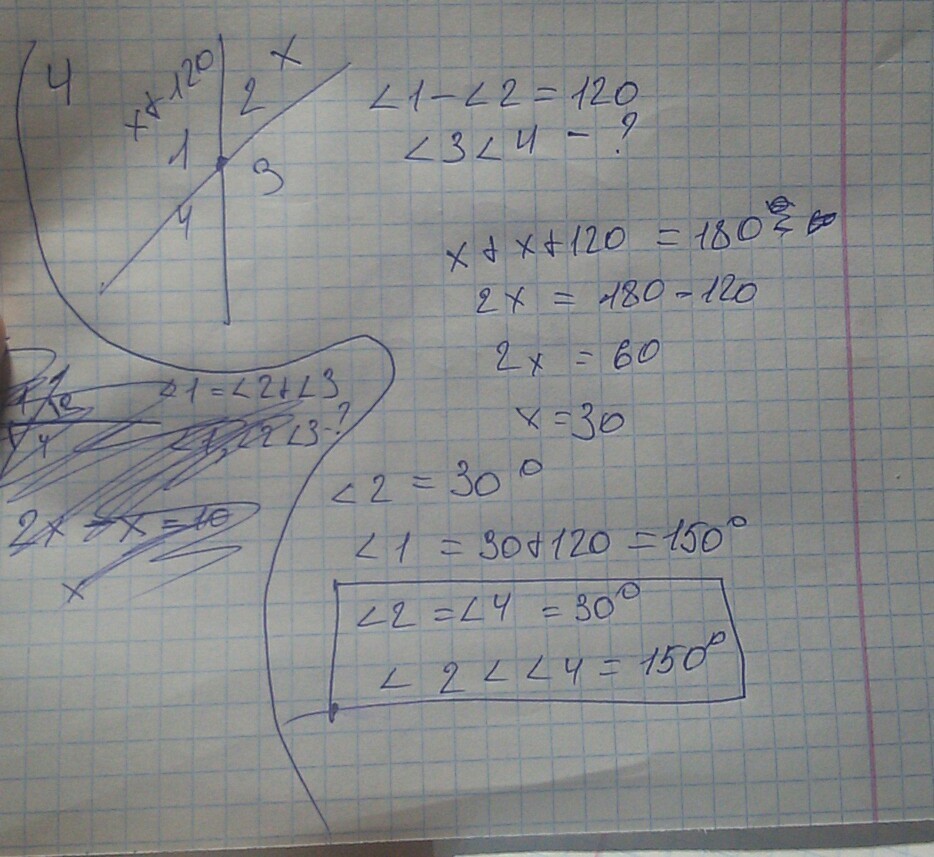 4
x+120
x
1
2
3
4
∠1-∠2=120
∠3∠4-?
x+x+120=180
2x=180-120
2x=60
x=30
∠1=∠2+∠3
2x-x=10
x
∠2=30°
∠1=30+120=150°
∠2=∠4=30°
∠2<∠4=150°